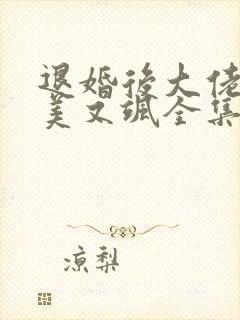 退婚后大佬
美又飒全集
凉梨